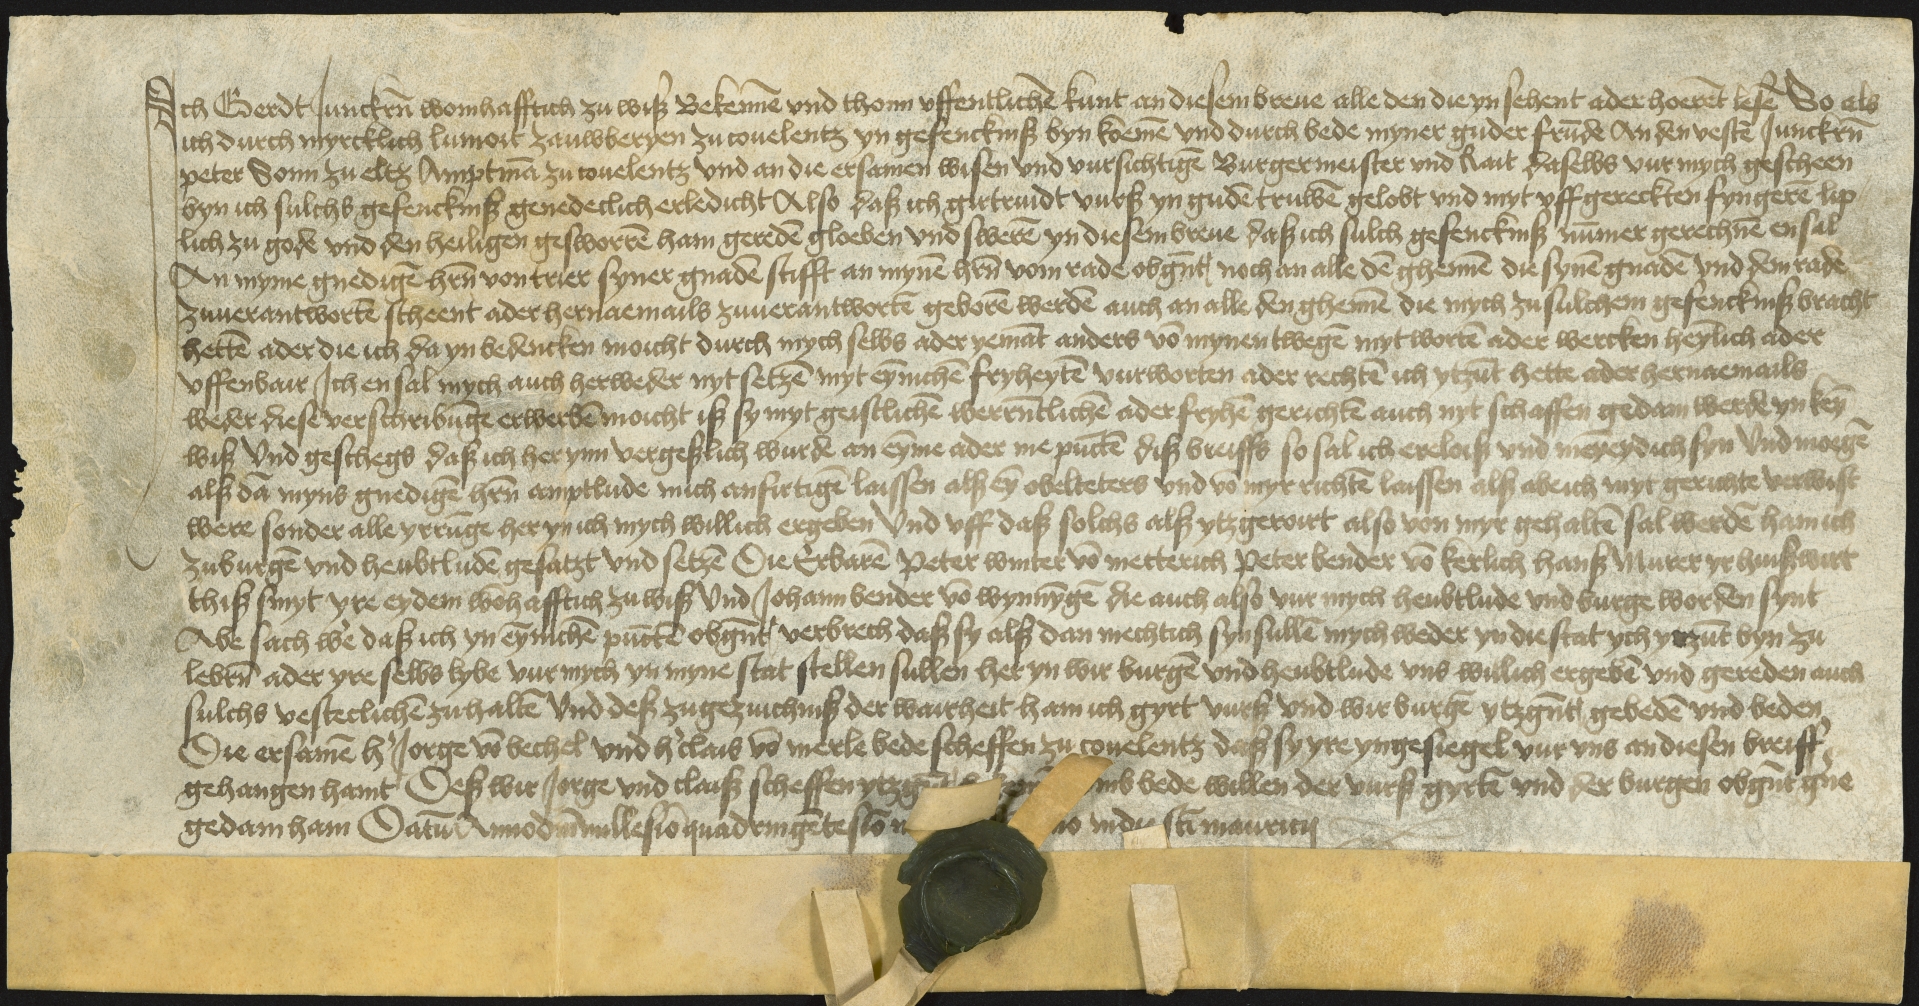 Ich Gerdt Junckern womhafftich zu wiß Bekenne͂ vnd thonn vffentliche͂ kunt an diesem breue alle den die yn sehent ader hoere͂t lese͂ So als
ich durch myrcklich lumoit zauwberyen zu couelentz yn gefenckniß byn kome͂ vnd durch bede myner guder fru͂de An den veste͂ Junckern
peter Sonn zu eltz Amptma͂ zu couelentz vnd an die ersamen wisen vnd vursichtige͂ Burgermeister vnd Rait daselbs vur mych gescheen
byn ich sulchs gefenckniß genedeclich erledicht Also daß ich girtruidt vurß yn gude͂ truwe͂ gelobt vnd myt vffgereckten fyngere͂ lip
lich zu gode vnd den heiligen gesworre͂ ham gerede͂ gloeben vnd swere͂ yn diesem breue daß ich sulch gefenckniß nu͂mer gereche͂n en sal
An myme gnedige͂ hr͂n von trier syner gnade͂ stifft an myne͂ hr͂n vom rade obgn͂t noch an alle de͂ ghenne͂ die syne͂ gnade͂ vnd dem rade
zuuerantworte͂ steent ader hernaemails zuuerantworte͂ gebore͂ werde͂ auch an alle den ghenne͂ die mych zu sulchem gefenckniß bracht
hette͂ ader die ich da yn bedencken moicht durch mych selbs ader yema͂t anders vo͂ mynentwege͂ myt worte͂ ader wercken heylich ader
vffenbair Ich en sal mych auch herweder nyt setze͂ myt ey͂niche͂ fryheyte͂ vurworten ader rechte͂ ich ytzu͂t hette ader hernaemails
weder diese verschribu͂ge erwerbe͂ moicht iß sy myt geistliche͂ werrntliche͂ ader fryhe͂ gerichte͂ auch nyt schaffen gedam werde͂ yn key͂
wiß Vnd geschegs daß ich herynn vergeßlich wurde an ey͂me ader me pu͂cte͂ diß breiffs so sal ich ereloiß vnd meyneydich syn Vnd moege͂
alß da͂ myns gnedige͂ hr͂n amptlude mich anfirtige͂ laissen alß ey͂ obelteters vnd vo͂ myr richte͂ laissen alß abe ich myt gerichte verwist
were sonder alle yrru͂ge her yn ich mych willich ergeben Vnd vff daß solchs alß ytzgeroirt also von myr gehalte͂ sal werde͂ ham ich
zu burge͂ vnd heubtlude͂ gesatzt vnd setze͂ Die Erbare͂ Peter winter vo͂ metterich Peter bender vo͂ kerlich hanß Murer yr huißwirt
thiß smyt yre eydem wo͂hafftich zu wiß Vnd Johann bender vo͂ wynny͂ge͂ die auch also vur mych heubtlude vnd burge worden synt
Abe sach we͂ daß ich yn ey͂niche͂ pu͂cte͂ obgn͂t verbrech daß sy alß dan mechtich syn sulle͂ mych weder yn die stat ych ytzu͂t byn zu
lebrn͂ ader yre selbs lybe vur mych yn myne stat stellen sullen her yn wir burge͂ vnd heubtlude vns willich ergebe͂ vnd gereden auch
sulchs vesteclichen zu halte͂ Vnd deß zu gezuichniß der wairheit ham ich gyrt vurß vnd wir burge͂ ytzgn͂t gebede͂ vnd beden
Die ersame͂ h' Jorge vo͂ bechel vnd h' clais vo͂ merle bede scheffen zu couelentz daß sy yre yngesiegel vur vns an diesen breiff
gehangen hamt Deß wir Jorge vnd claiß scheffen ytzgn͂t vmb bede willen der vurß gyrte͂ vnd der burgen obgn͂t gne
gedam ham Datu͂ Anno dm͂ millesi͂o quadringe͂tesi͂o in die sti͂ mauricij